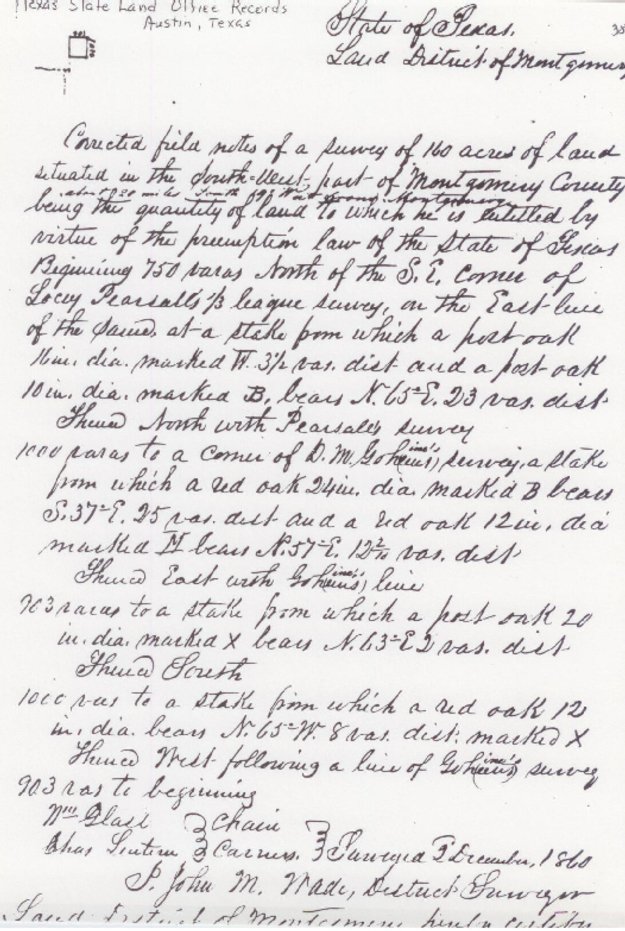 Texas State Land Office Records
Austin, Texas
State of Texas.
Land District of Montgomery
Corrected field notes of a survey of 160 acres of land
situated in the South-West part of Montgomery County
about 20 miles South West from Montgomery
being the quantity of land to which he is entitled by
virtue of the preemption law of the State of Texas
Beginning 750 varas North of the S.E. corner of
Pearsall's 1/3 league survey, on the East line
of the same at a stake from which a post oak
16 in. dia. marked W. 3½ vas. dist and a post oak
10 in. dia. marked B, bears N. 65° E. 23 vas. dist
Thence North with Pearsalls survey
1000 varas to a corner of D. M. survey, a stake
from which a red oak 24 in. dia. marked B bears
S. 37° E. 25 vas. dist and a red oak 12 in. dia
marked bears N. 57° E. 12 2/10 vas. dist
Thence East with line
903 varas to a stake from which a post oak 20
in. dia. marked X bears N. 63° E 2 vas. dist
Thence South
1000 vas to a stake from which a red oak 12
in. dia. bears N. 65° W. 8 vas. dist. marked X
Thence West following a line of survey
903 vas to beginning
Wm Glass } Chain
Chas } Carriers. } Surveyed December, 1860
John M. Wade, District Surveyor
Land District of Montgomery hereby certify